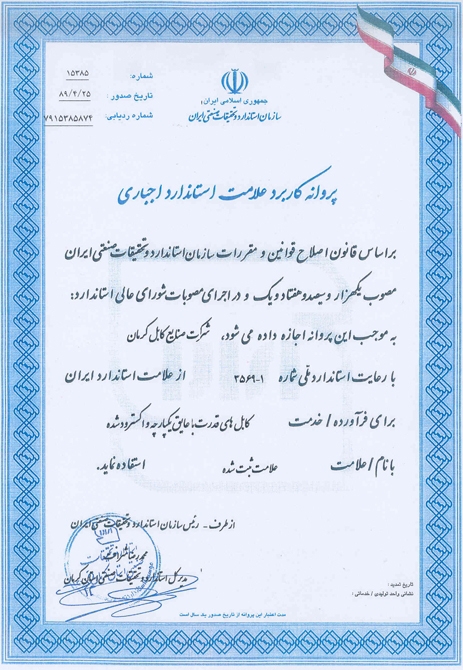 شماره: ۱۵۳۸۵
تاریخ صدور: ۸۹/۴/۲۵
شماره ردیابی: ۷۹۱۵۳۸۵۸۷۴
جمهوری اسلامی ایران
سازمان استاندارد و تحقیقات صنعتی ایران
پروانه کاربرد علامت استاندارد اجباری
براساس قانون اصلاح قوانین و مقررات سازمان استاندارد و تحقیقات صنعتی ایران
مصوب یکهزار و سیصد و هفتاد و یک و در اجرای مصوبات شورای عالی استاندارد:
به موجب این پروانه اجازه داده می شود، شرکت صنایع کابل کرمان
با رعایت استاندارد ملی شماره ۱-۳۵۶۹ از علامت استاندارد ایران
برای فرآورده / خدمت کابل های قدرت با عایق یکپارچه و اکسترود شده
با نام / علامت علامت ثبت شده استفاده نماید.
از طرف - رئیس سازمان استاندارد و تحقیقات صنعتی ایران
مدیر کل استاندارد و تحقیقات صنعتی استان کرمان
تاریخ تمدید:
نشانی واحد تولیدی / خدماتی:
مدت اعتبار این پروانه از تاریخ صدور یک سال است